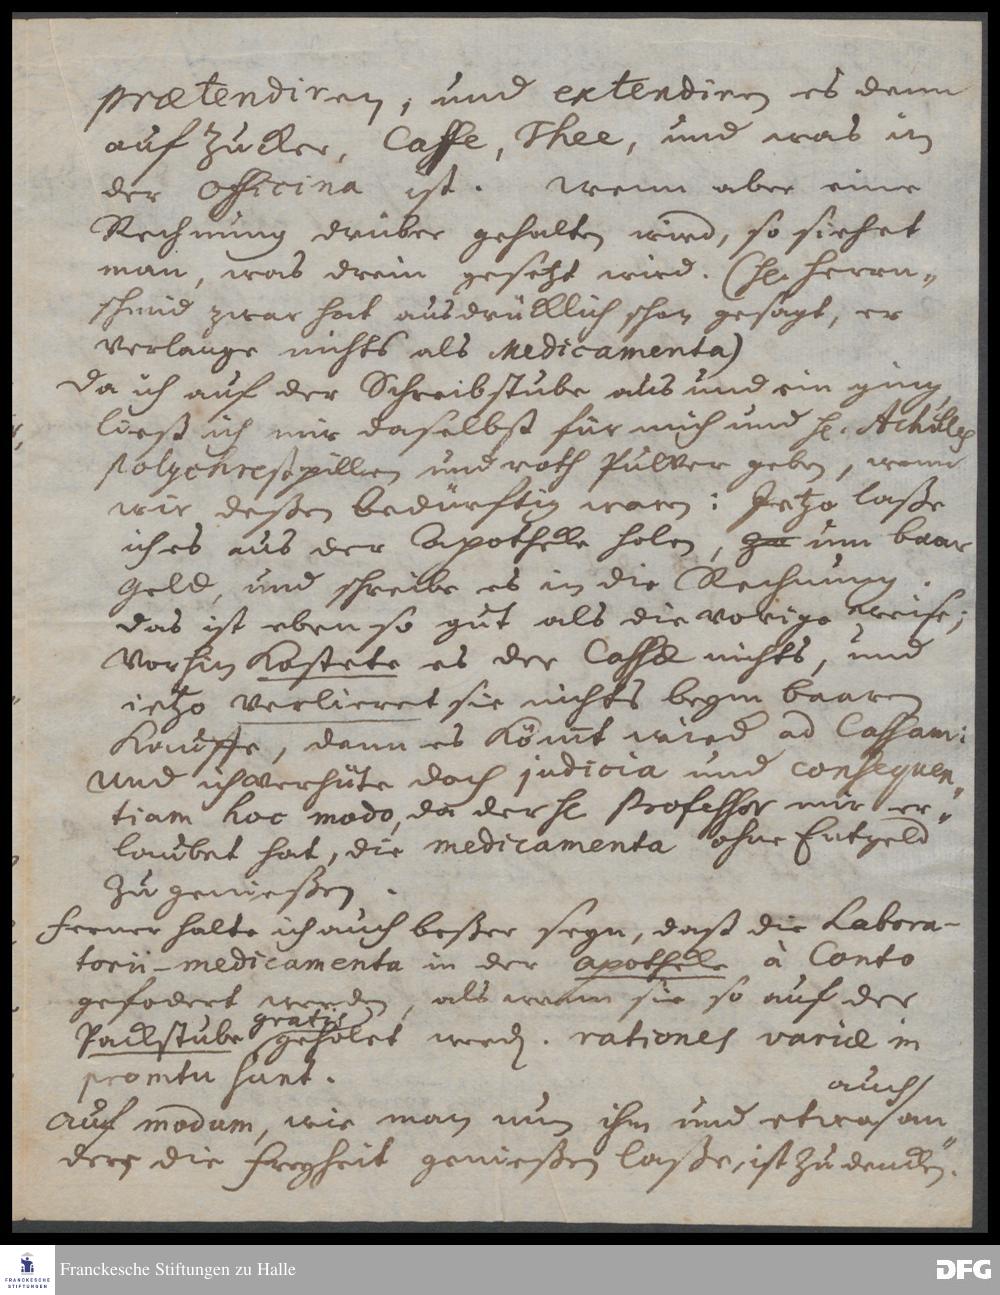 prætendiren, und extendiren es denn
auf Zucker, Caffe, Thee, und was in
der Officina ist. wenn aber eine
Rechnung drüber gehalten wird, so siehet
man, was drein gesetzt wird. (H. Herrn„
schmid zwar hat ausdrücklich schon gesagt, er
verlange nichts als Medicamenta)
Da ich auf der Schreibstube aus und ein ging
ließ ich mir daselbst für mich und H. Achilles
polychrestpillen und roth Pulver geben, wenn
wir deßen bedürftig waren: Jetzo laße
ich es aus der Apotheke holen, um baar
Geld, und schreibe es in die Rechnung.
das ist eben so gut als die vorige weise;
Vorhin kostete es der Cassæ nichts, und
ietzo verlieret sie nichts beym baaren
Kauffe, denn es kömt wied ad Cassam:
Und ich verhüte doch judicia und consequen„
tiam hoc modo, da der H Professor mir er„
laubet hat, die medicamenta ohne Entgeld
zu genießen.
Ferner halte ich auch beßer seyn, daß die Labora-
torii-medicamenta in der Apotheke à Conto
gefodert werden, als wenn sie so auf der
gratis
Packstube geholet werd. rationes variæ in
promtu sunt.
auch
Auf modum, wie man nun ihn und etwas an„
ders die Freyheit genießen laße, ist zu dencken.
Franckesche Stiftungen zu Halle
FRANCKESCHE
STIFTUNGEN
DFG